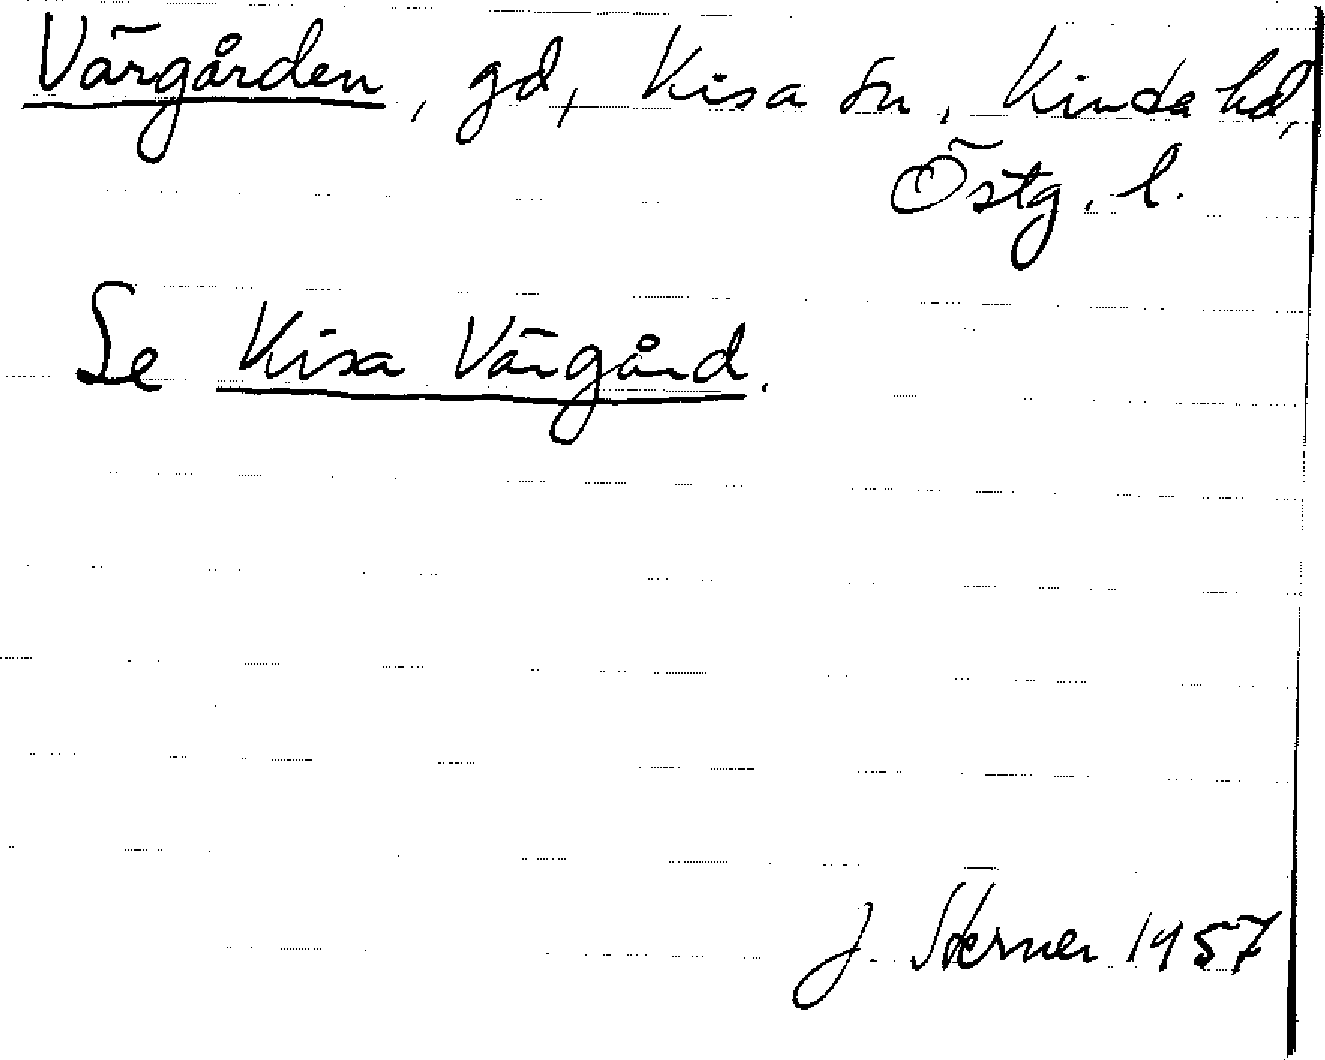 Värgården, gd, Kisa sn, Kinda hd,
Östg. l.
Se Kisa Värgård.
J. Sterner 1957